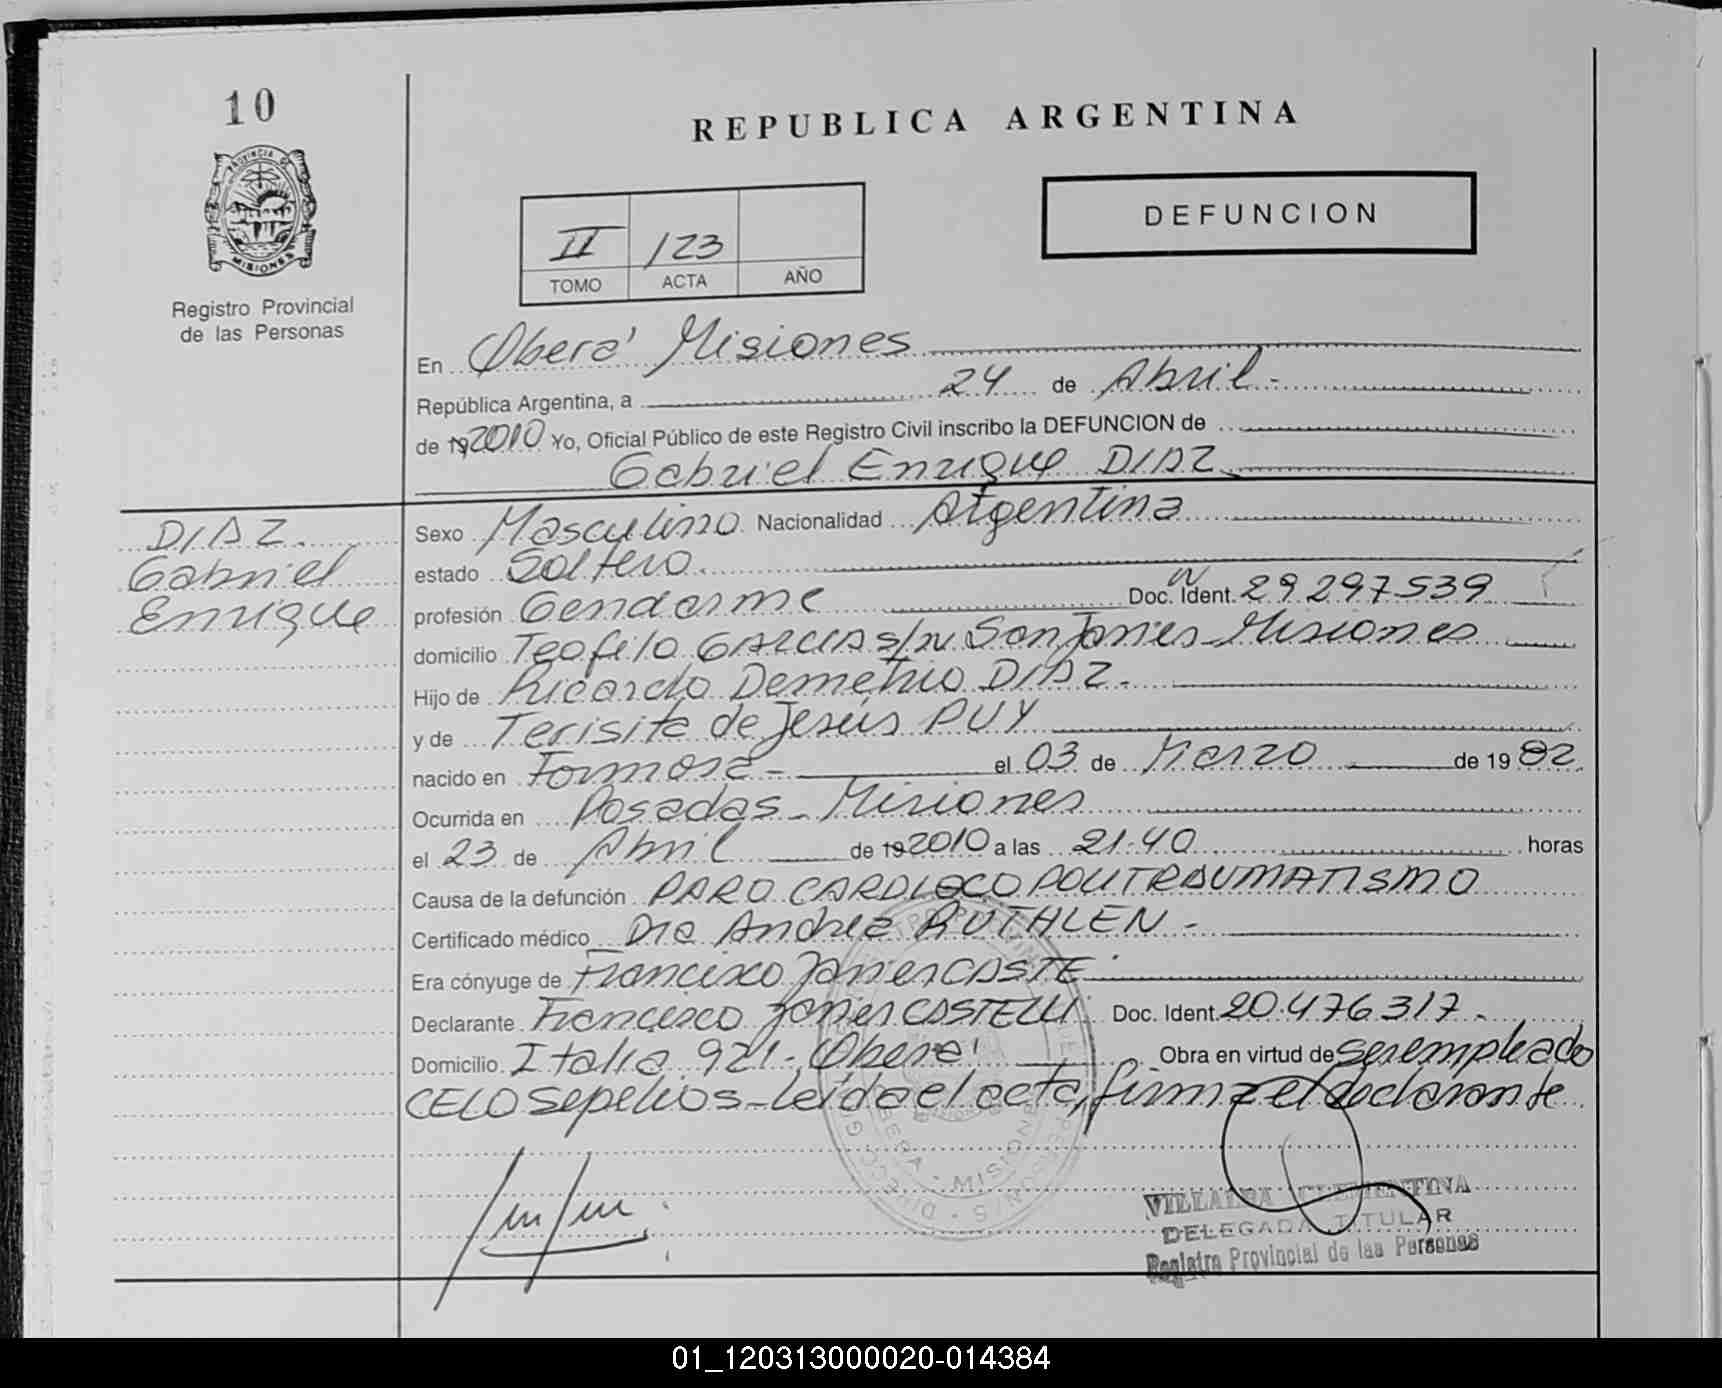 10
REPUBLICA ARGENTINA
PROVINCIA DE
MISIONES
Registro Provincial
de las Personas
DEFUNCION
II /23
TOMO ACTA AÑO
En Oberá Misiones
República Argentina, a 24 de Abril -
de 19 2010 Yo, Oficial Público de este Registro Civil inscribo la DEFUNCION de
Gabriel Enrique DIAZ
DIAZ
Gabriel
Enrique
Sexo Masculino Nacionalidad Argentina
estado Soltero.
profesión Gendarme Doc. Ident. 29297539
domicilio Teofilo GARCIA s/N San Javier - Misiones
Hijo de Ricardo Demetrio DIAZ -
y de Terisita de Jesús PUY
nacido en Formosa - el 03 de Marzo de 19 82
Ocurrida en Posadas - Misiones
el 23 de Abril de 19 2010 a las 21.40 horas
Causa de la defunción PARO CARDIACO POLITRAUMATISMO
Certificado médico Dra Andrea RUTHLEN -
Era cónyuge de Francisco Javier CASTE
Declarante Francisco Javier CASTELLI Doc. Ident. 20.476317 -
Domicilio Italia 921 - Oberá Obra en virtud de ser empleado
CELO Sepelios - Leída el acta, firma el declarante
VILLALBA CLEMENTINA
DELEGADA TITULAR
Registro Provincial de las Personas
01_120313000020-014384